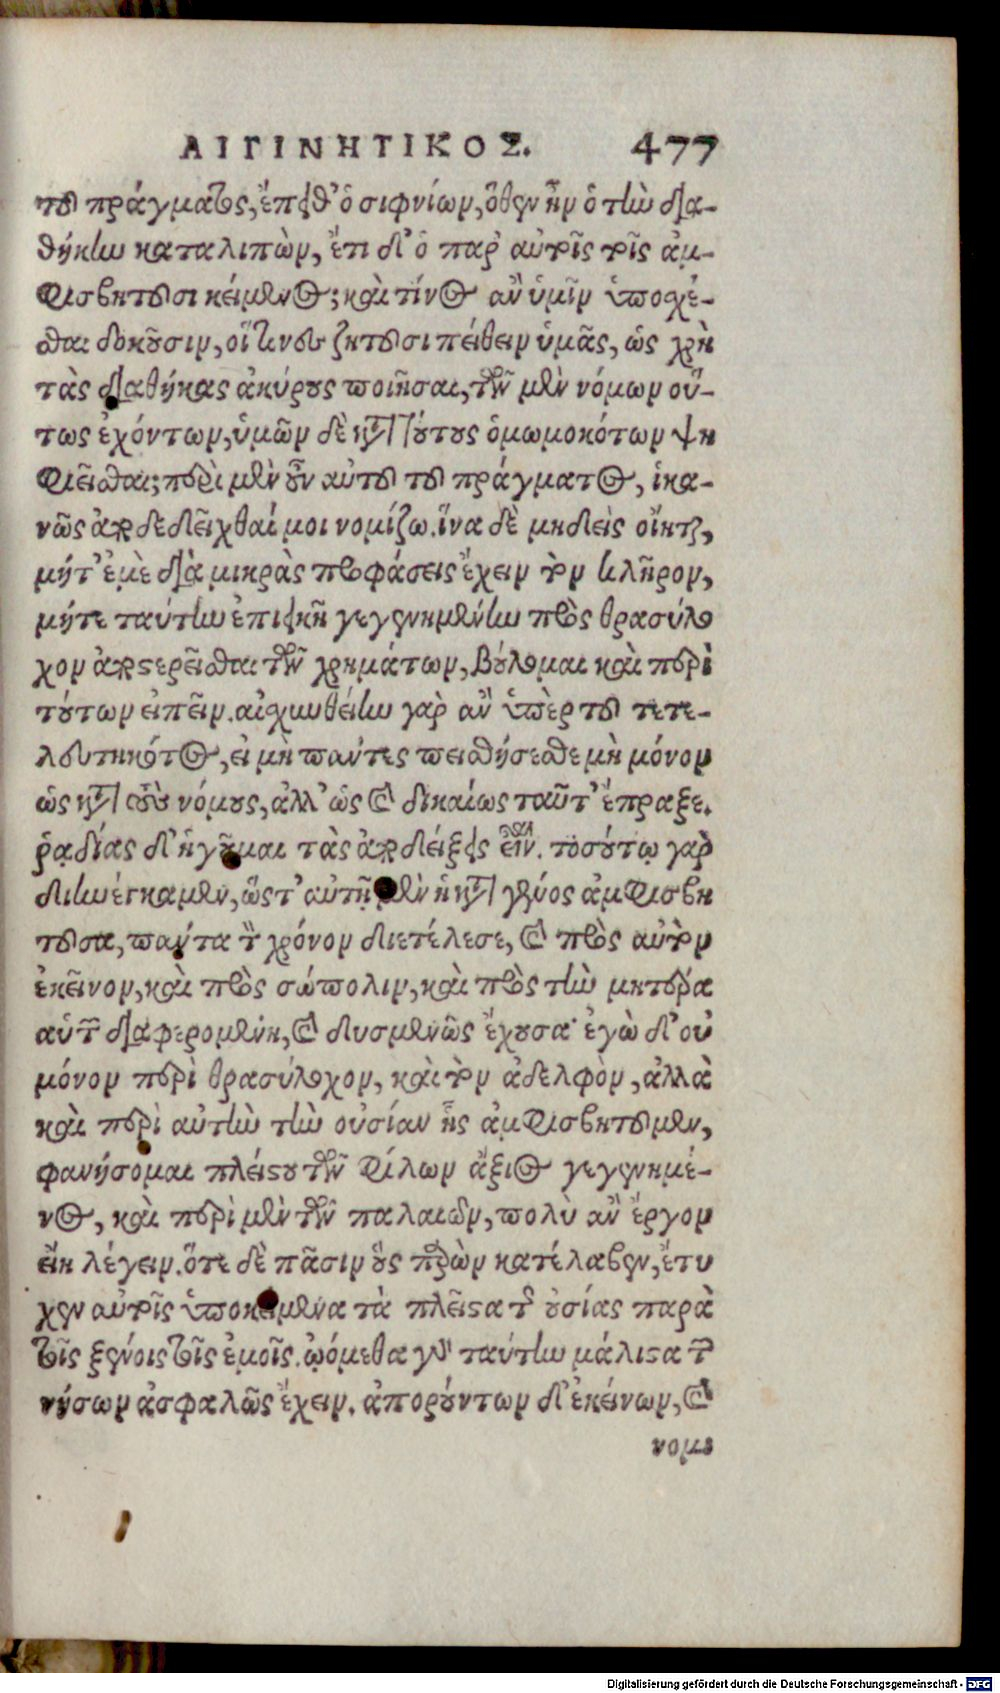 ΑΙΓΙΝΗΤΙΚΟΣ. 477
τοῦ πράγματος, ἔπειθ' ὁ σιφνίων, ὅθεν ἦν ὁ τὴν δια-
θήκην καταλιπὼν, ἔτι δ' ὁ παρ' αὐτοῖς τοῖς ἀμ-
φισβητοῦσι κείμενος; καὶ τίνος ἂν ὑμῖν ὑποσχέ-
σθαι δοκοῦσιν, οἵτινες ζητοῦσι πείθειν ὑμᾶς, ὡς χρὴ
τὰς διαθήκας ἀκύρους ποιῆσαι, τῶν μὲν νόμων οὕ-
τως ἐχόντων, ὑμῶν δὲ κατὰ τούτους ὁμωμοκότων ψη
φιεῖσθαι; περὶ μὲν οὖν αὐτοῦ τοῦ πράγματος, ἱκα-
νῶς ἀποδεδεῖχθαί μοι νομίζω. ἵνα δὲ μηδεὶς οἴηται,
μήτ' ἐμὲ διὰ μικρὰς προφάσεις ἔχειν τὸν κλῆρον,
μήτε ταύτην ἐπιεικῆ γεγενημένην πρὸς θρασύλο
χον ἀποστερεῖσθαι τῶν χρημάτων, βούλομαι καὶ περὶ
τούτων εἰπεῖν. αἰσχυνθείην γὰρ ἂν ὑπὲρ τοῦ τετε-
λευτηκότος, εἰ μὴ πάντες πεισθήσεσθε μὴ μόνον
ὡς κατὰ τοὺς νόμους, ἀλλ' ὡς καὶ δικαίως ταῦτ' ἔπραξε.
ῥᾳδίας δ' ἡγοῦμαι τὰς ἀποδείξεις εἶναι. τοσούτῳ γὰρ
διηνέγκαμεν, ὥστ' αὐτὴ μὲν ἡ κατὰ γένος ἀμφισβη
τοῦσα, πάντα τὸν χρόνον διετέλεσε, καὶ πρὸς αὐτὸν
ἐκεῖνον, καὶ πρὸς σώπολιν, καὶ πρὸς τὴν μητέρα
αὐτῶν διαφερομένη, καὶ δυσμενῶς ἔχουσα· ἐγὼ δ' οὐ
μόνον περὶ θρασύλοχον, καὶ τὸν ἀδελφὸν, ἀλλὰ
καὶ περὶ αὐτὴν τὴν οὐσίαν ἧς ἀμφισβητοῦμεν,
φανήσομαι πλείστου τῶν φίλων ἄξιος γεγενημέ-
νος, καὶ περὶ μὲν τῶν παλαιῶν, πολὺ ἂν ἔργον
εἴη λέγειν. ὅτε δὲ πᾶσιν οὓς παρὼν κατέλαβεν, ἔτυ
χεν αὐτοῖς ὑποκείμενα τὰ πλεῖστα τῆς οὐσίας παρὰ
τοῖς ξένοις τοῖς ἐμοῖς. ᾠόμεθα γὰρ ταύτην μάλιστα τῶν
νήσων ἀσφαλῶς ἔχειν. ἀπορούντων δ' ἐκείνων, καὶ
νομι
Digitalisierung gefördert durch die Deutsche Forschungsgemeinschaft - DFG